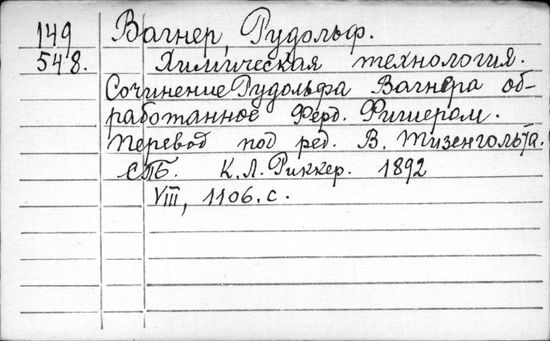 149 Вагнер, Рудольф.
548. Химическая технология.
Сочинение Рудольфа Вагнера об-
работанное Ферд. Фишером.
Перевод под ред. В. Тизенгольта.
СПБ. К.Л. Риккер. 1892
VIII, 1106. с.